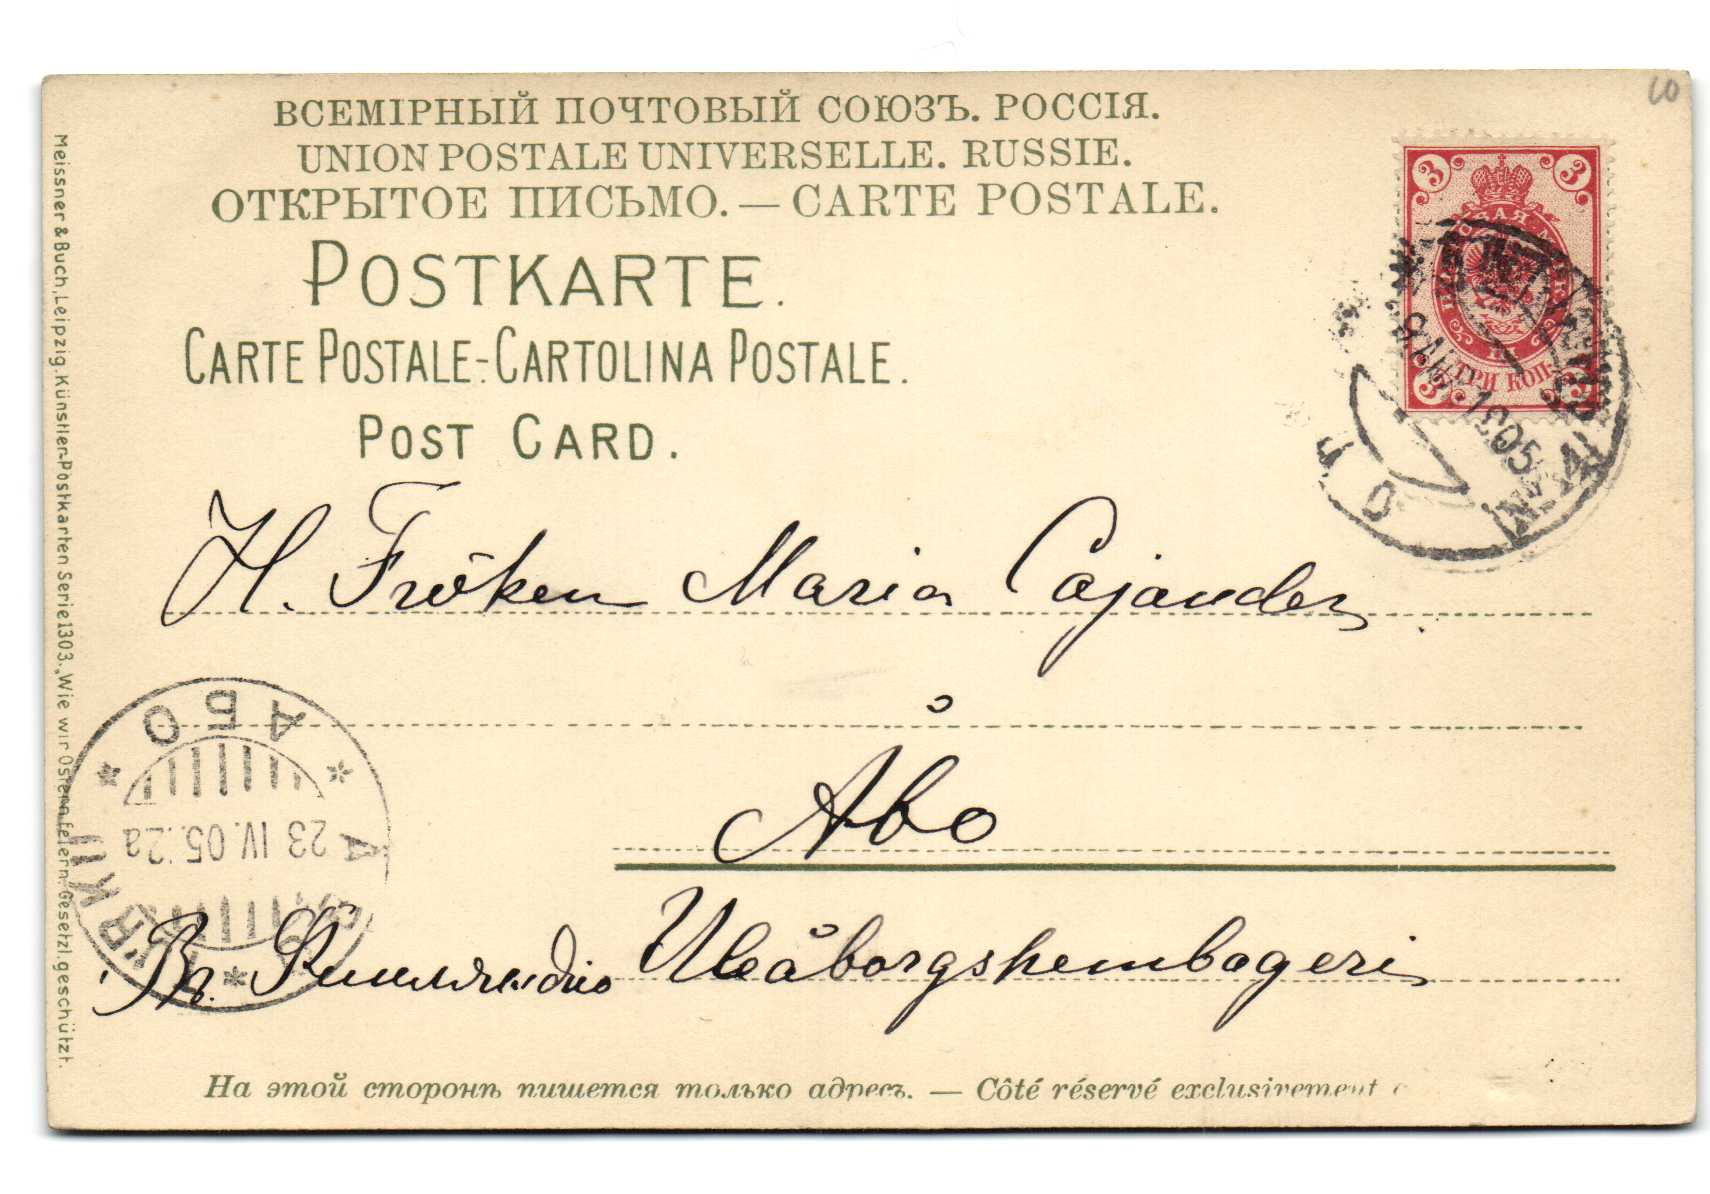 ВСЕМІРНЫЙ ПОЧТОВЫЙ СОЮЗЪ. РОССІЯ.
UNION POSTALE UNIVERSELLE. RUSSIE.
ОТКРЫТОЕ ПИСЬМО. — CARTE POSTALE.
POSTKARTE.
CARTE POSTALE-CARTOLINA POSTALE.
POST CARD.
3 3
ТРИ КОП.
3 3
1905
H. Fröken Maria Cajander
Åbo
Въ Финляндію Uleåborgshembageri
АБО
23 IV.05.2a
Meissner & Buch, Leipzig. Künstler-Postkarten Serie 1303. „Wie wir Ostern feiern." Gesetzl. geschützt.
На этой сторонѣ пишется только адресъ. — Côté réservé exclusivement
10